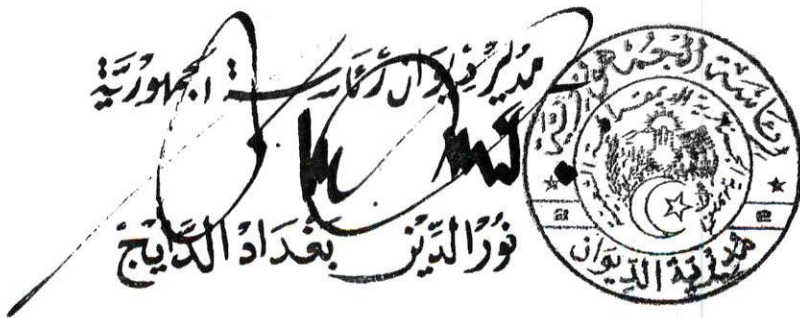 مدير ديوان رئاسة الجمهورية
نور الدين بغداد الدايج
رئاسة الجمهورية
مديرية الديوان